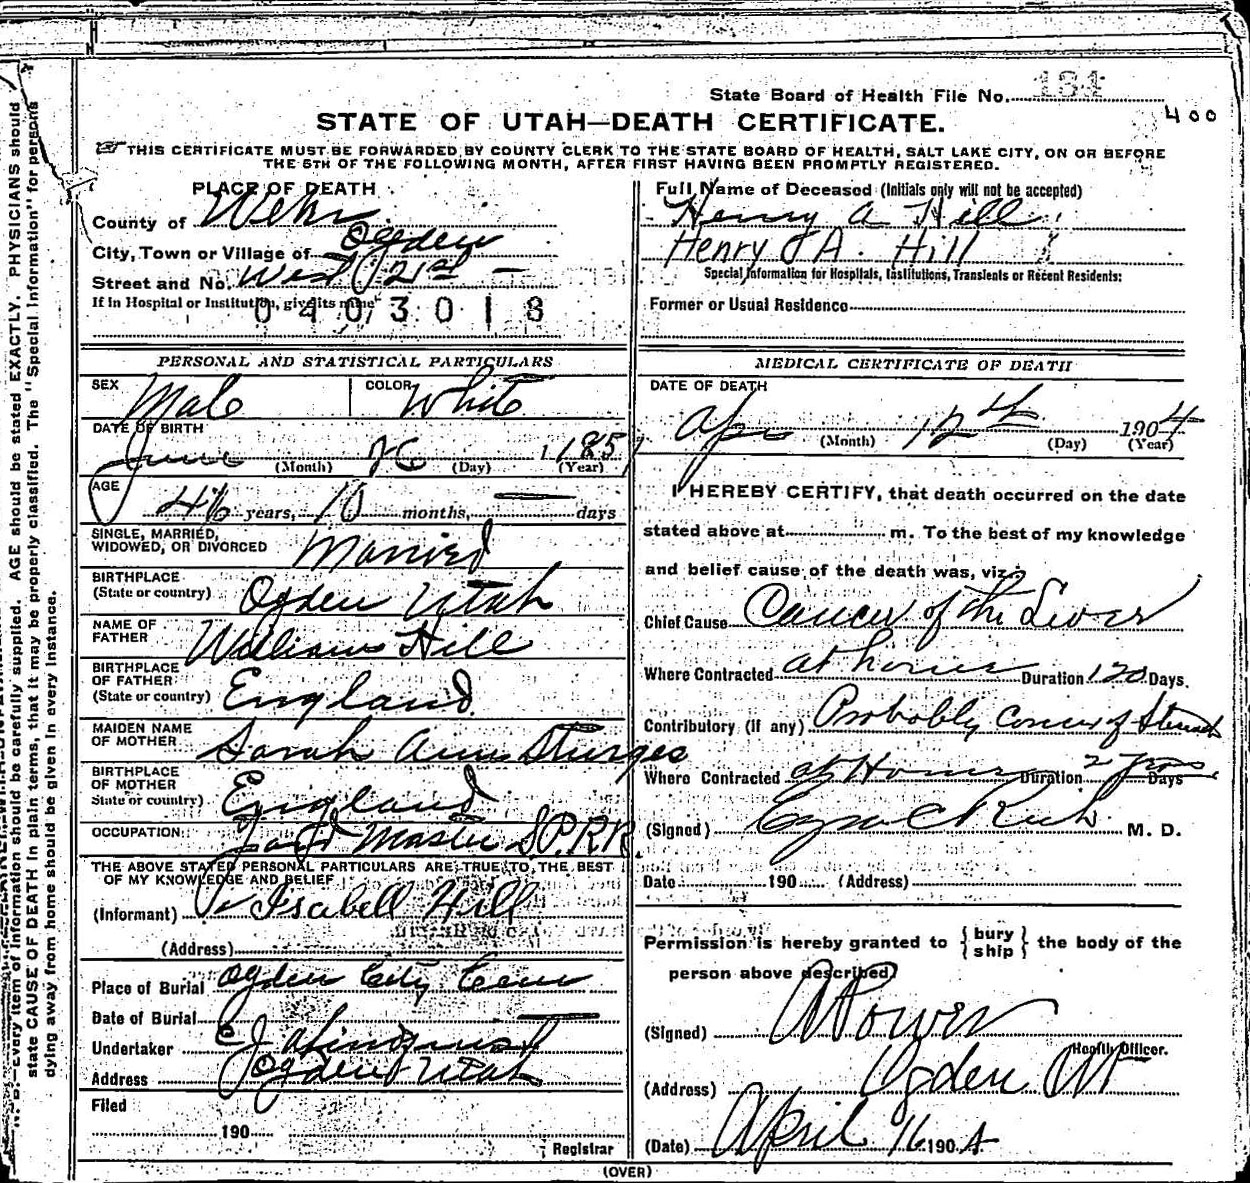 State Board of Health File No. 134
400
STATE OF UTAH—DEATH CERTIFICATE.
THIS CERTIFICATE MUST BE FORWARDED BY COUNTY CLERK TO THE STATE BOARD OF HEALTH, SALT LAKE CITY, ON OR BEFORE
THE 5TH OF THE FOLLOWING MONTH, AFTER FIRST HAVING BEEN PROMPTLY REGISTERED.
PLACE OF DEATH
County of Weber
City, Town or Village of Ogden
Street and No. West 21st
If in Hospital or Institution, give its name
0403018
Full Name of Deceased (Initials only will not be accepted)
Henry A Hill
Henry A. Hill
Special Information for Hospitals, Institutions, Transients or Recent Residents:
Former or Usual Residence
PERSONAL AND STATISTICAL PARTICULARS
SEX Male COLOR White
DATE OF BIRTH
June (Month) 26 (Day) 1857 (Year)
AGE
46 years, 10 months, — days
SINGLE, MARRIED,
WIDOWED, OR DIVORCED Married
BIRTHPLACE
(State or country) Ogden Utah
NAME OF
FATHER William Hill
BIRTHPLACE
OF FATHER
(State or country) England
MAIDEN NAME
OF MOTHER Sarah Ann Sturges
BIRTHPLACE
OF MOTHER
State or country) England
OCCUPATION Yard Master S.P.R.R.
THE ABOVE STATED PERSONAL PARTICULARS ARE TRUE TO THE BEST
OF MY KNOWLEDGE AND BELIEF
(Informant) Isabell Hill
(Address)
Place of Burial Ogden City Cem
Date of Burial —
Undertaker J A Lindquist
Address Ogden Utah
Filed
190
Registrar
MEDICAL CERTIFICATE OF DEATH
DATE OF DEATH
Apr (Month) 12th (Day) 1904 (Year)
I HEREBY CERTIFY, that death occurred on the date
stated above at m. To the best of my knowledge
and belief cause of the death was, viz:
Chief Cause Cancer of the Liver
Where Contracted at home Duration 120 Days.
Contributory (if any) Probably Cancer of Stomach
Where Contracted at Home Duration 2 Years Days
(Signed) Ezra C Rich M. D.
Date 190 (Address)
Permission is hereby granted to { bury ship } the body of the
person above described
(Signed)
Health Officer.
(Address) Ogden Ut
(Date) April 16 1904
(OVER)
N. B.—Every item of information should be carefully supplied. AGE should be stated EXACTLY. PHYSICIANS should
state CAUSE OF DEATH in plain terms, that it may be properly classified. The "Special Information" for persons
dying away from home should be given in every instance.